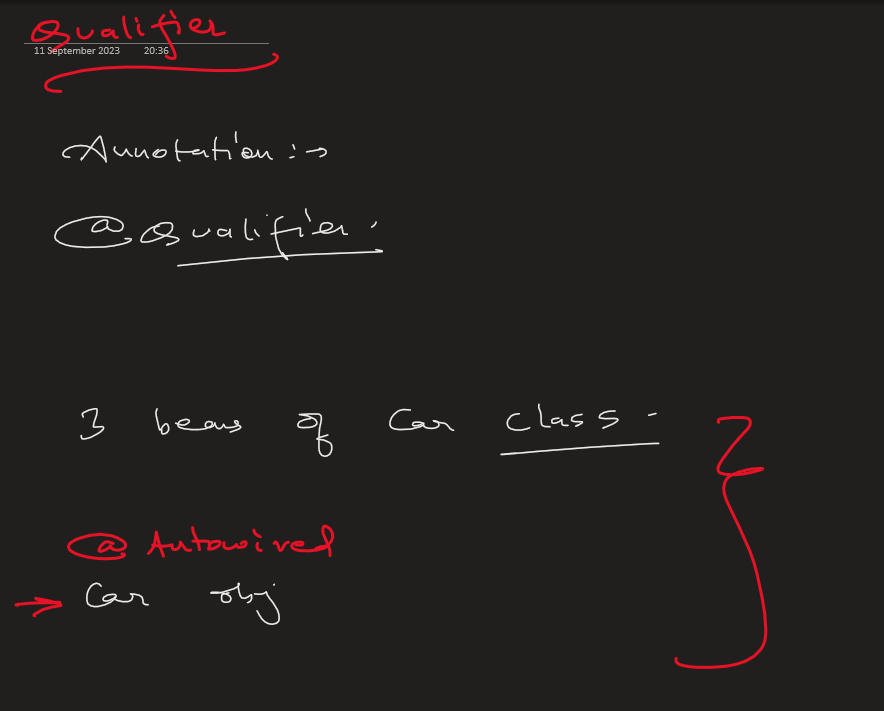 Qualifier
11 September 2023 20:36
Annotation :→
@Qualifier.
3 beans of Car class -
@Autowired
→ Car obj